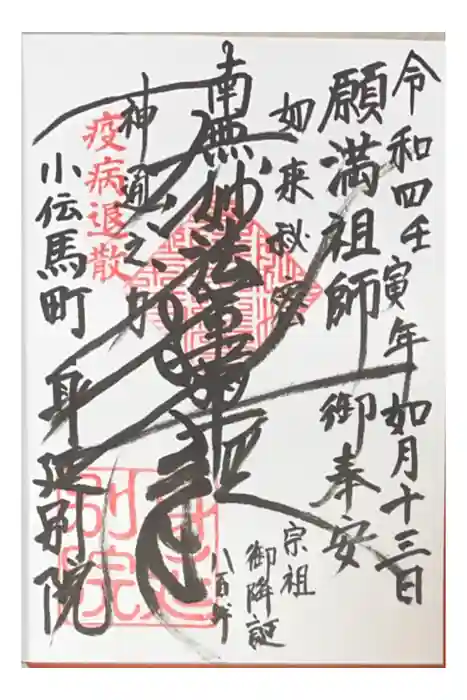 令和四壬寅年如月十三日
願満祖師御奉安
如来秘密
南無妙法蓮華経
神通之力
疫病退散
小伝馬町身延別院
宗祖
御降誕
八百年